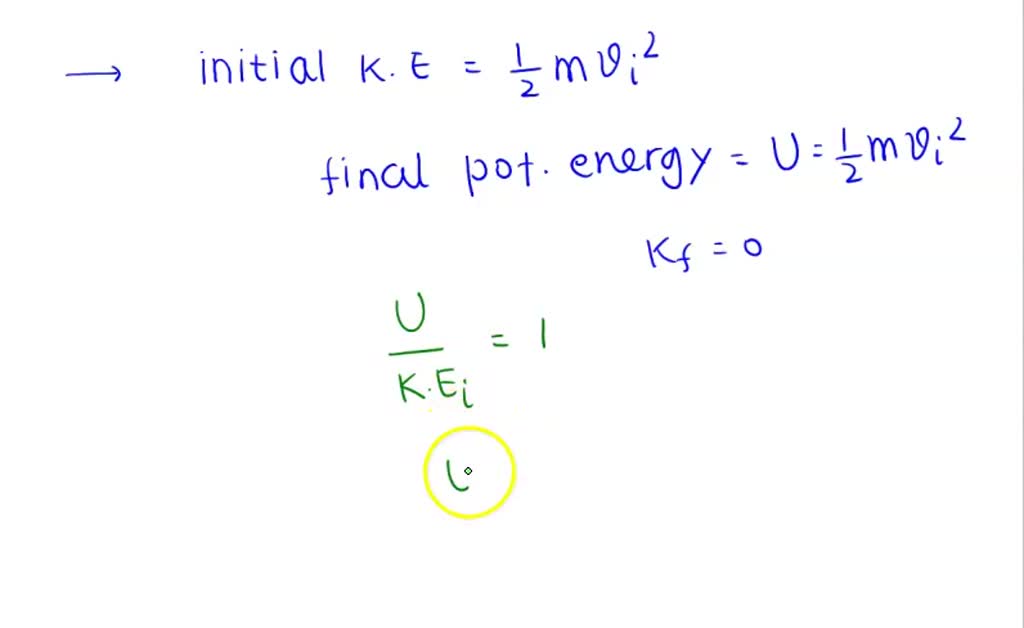 → initial K.E = 1/2 m v_i^2
final pot. energy = U = 1/2 m v_i^2
K_f = 0
U / K.E_i = 1